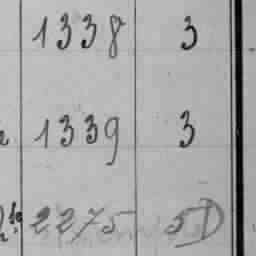 1338 3
1339 3
2275 5D